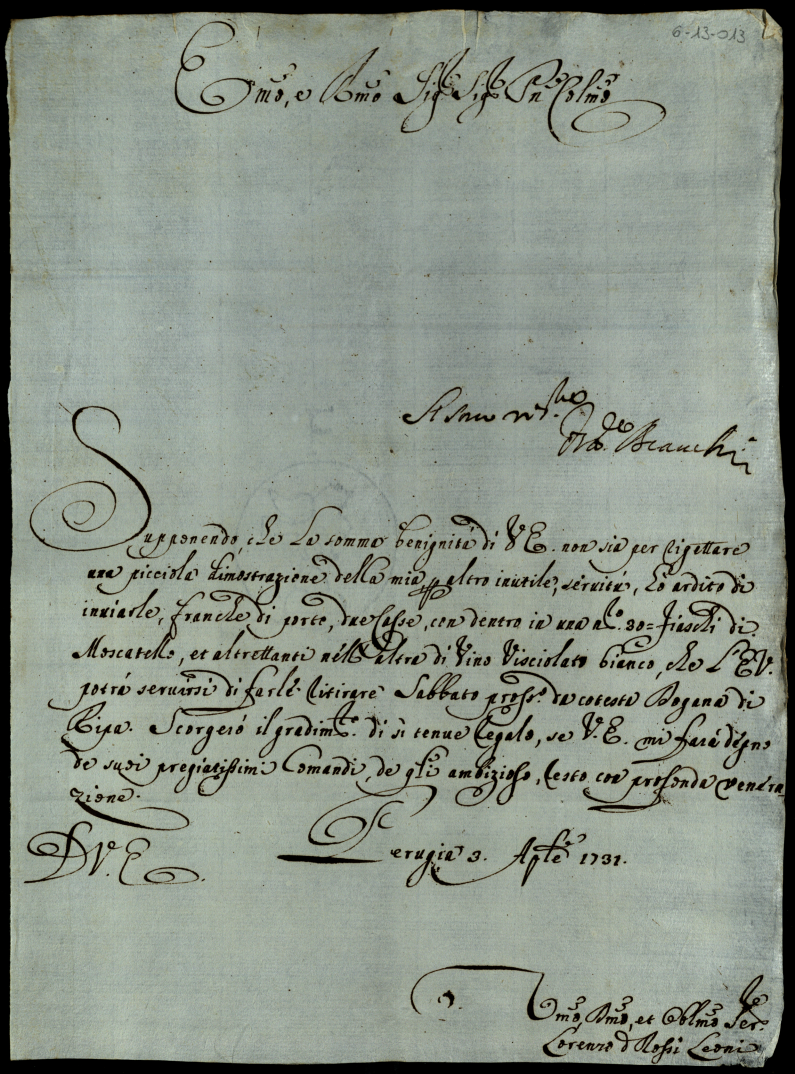 6-13-013
Emo, e Rmo Sigr Sigr Pne Colmo
Bianchi
Supponendo, che la somma benignità di V E. non sia per rigettare
una picciola dimostrazione della mia p altro inutile, servitù, hò ardito di
inviarle, franche di porto, due Casse, con dentro in una no. 30= fiaschi di
Moscatello, et altrettanti nell'altra di Vino Visciolato bianco, che L'E.V.
potrà servirsi di farle ritirare Sabbato pross:o da cotesta Dogana di
Ripa. Scorgerò il gradimto. di sì tenue regalo, se V.E. mi farà degno
de suoi pregiatissimi Comandi, de quali ambizioso, resto con profonda venera
zione.
D V. E. Perugia 3. Aple 1731.
Umo, Dmo, et Oblmo Serre
Lorenzo de Rossi Leoni